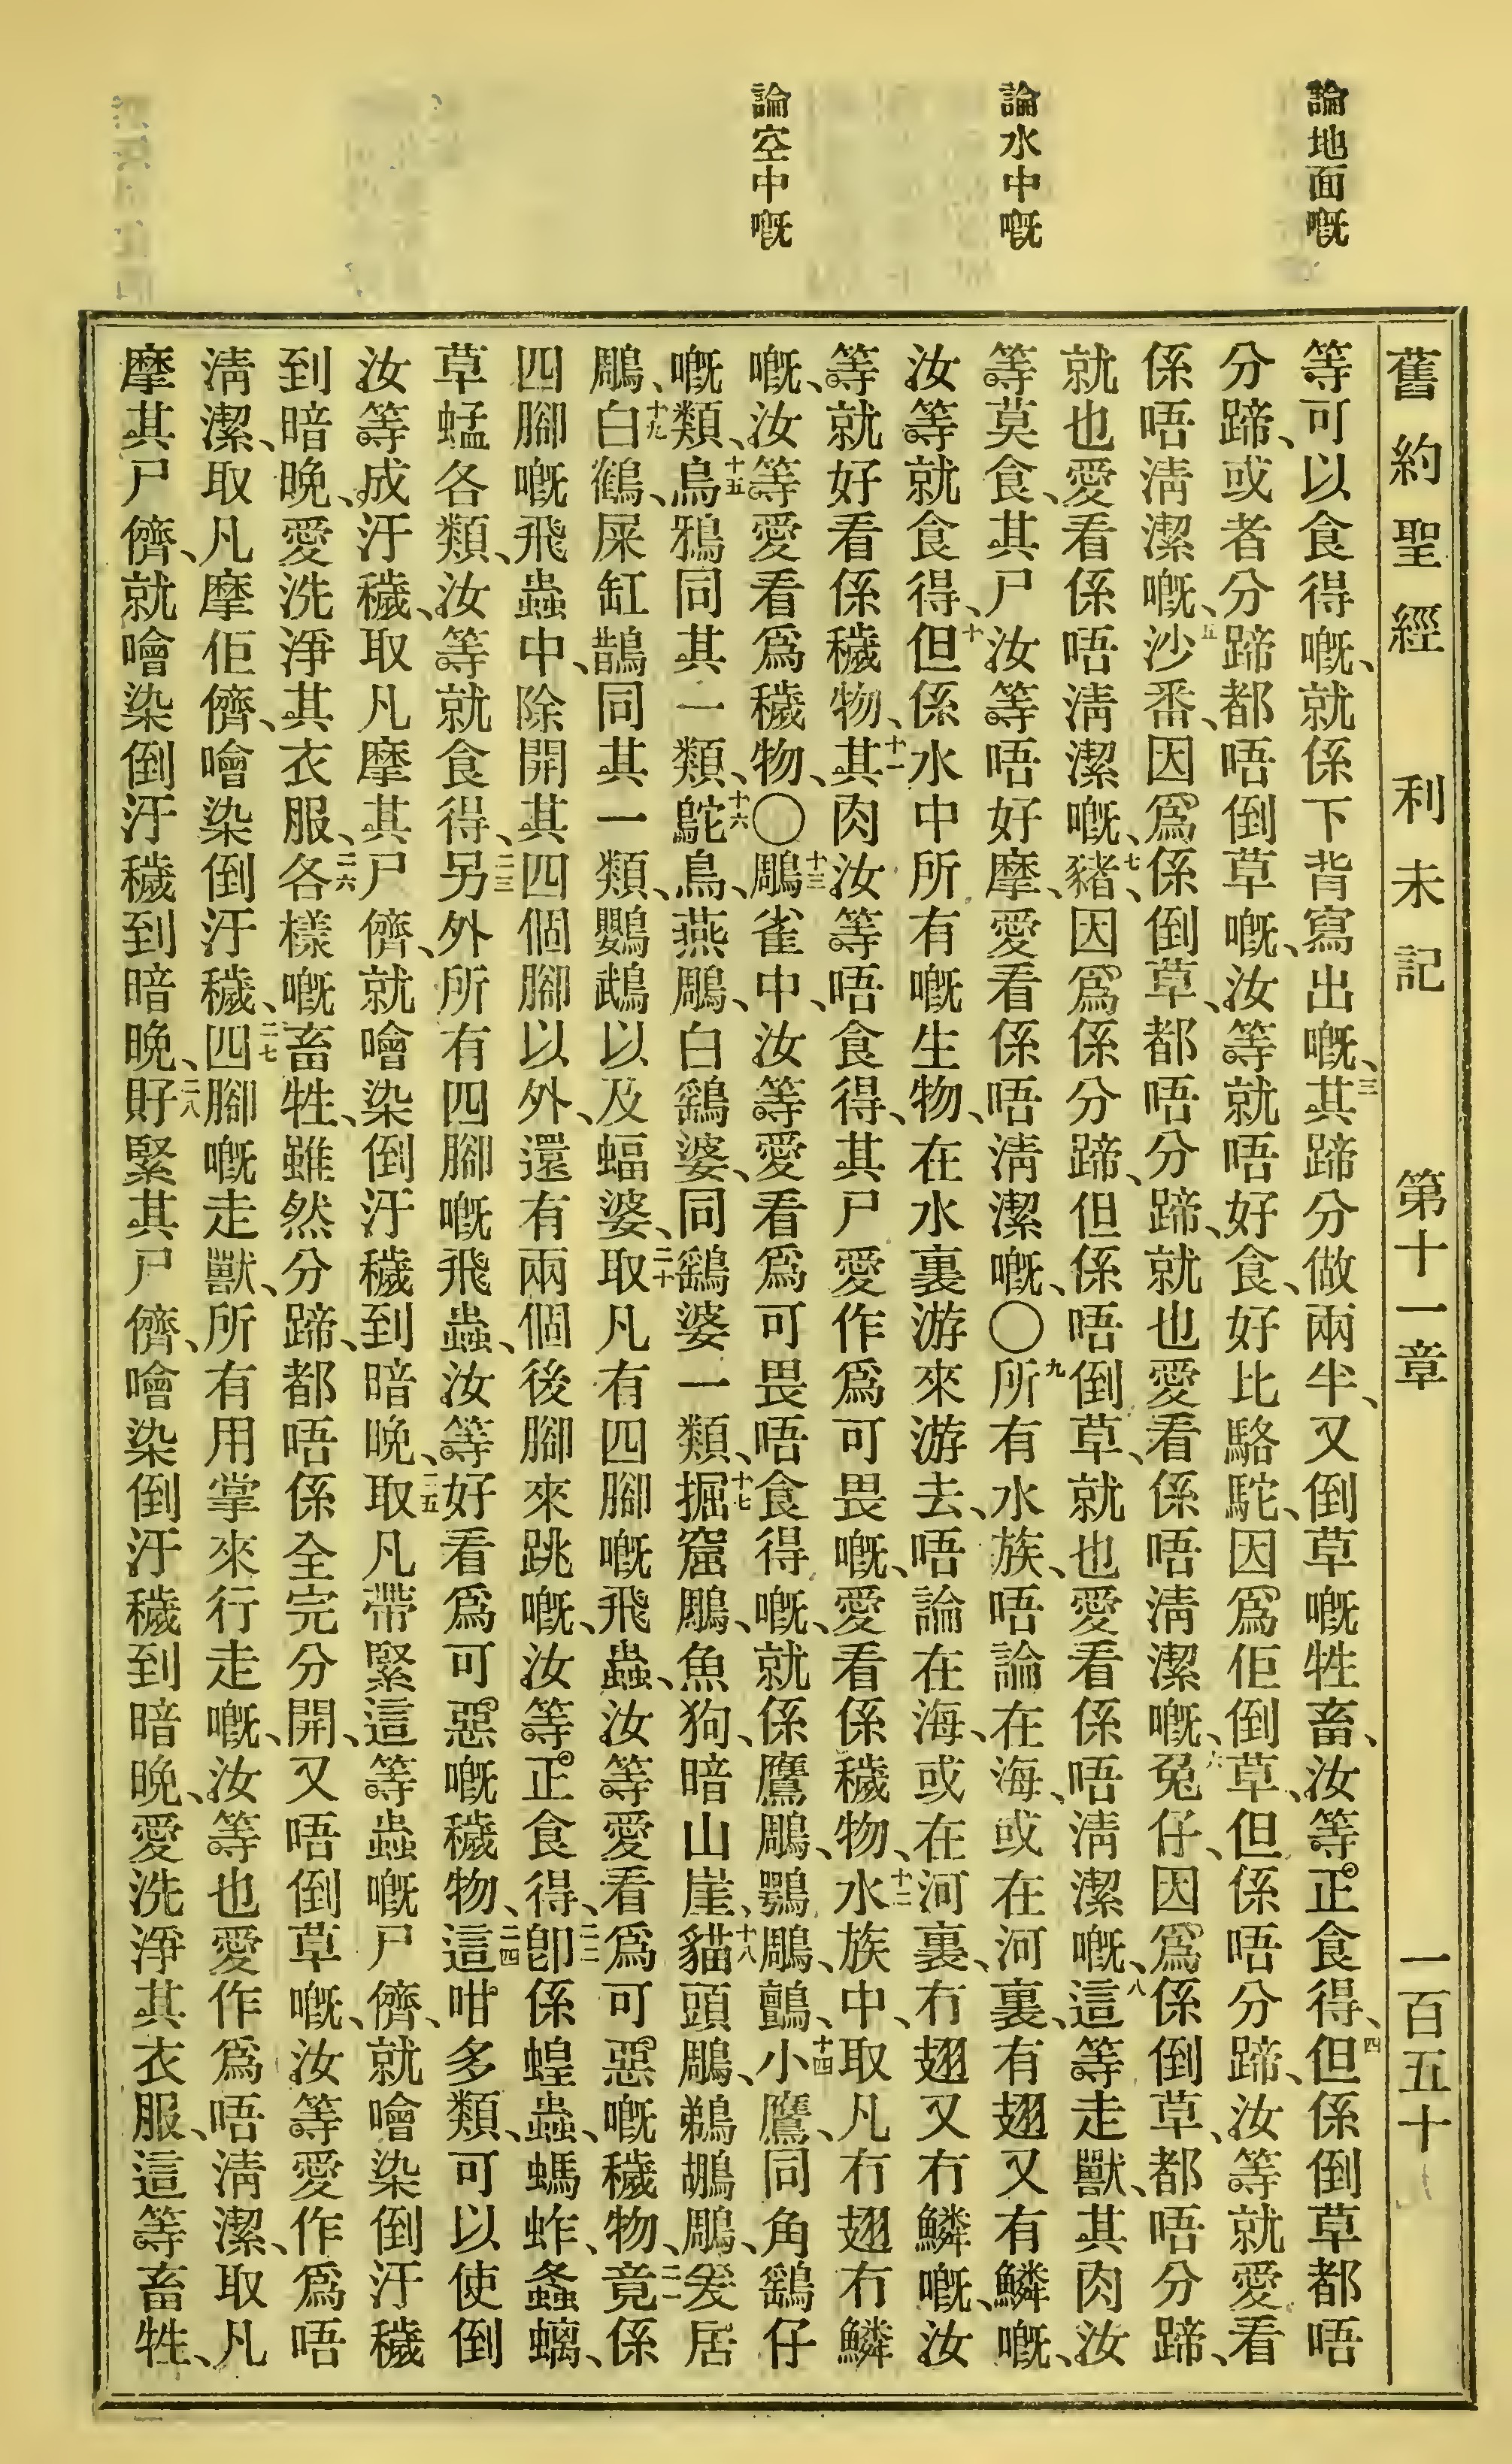 論地面嘅
論水中嘅
論空中嘅
舊約聖經 利未記 第十一章 一百五十
等可以食得嘅、就係下背寫出嘅、三其蹄分做兩半、又倒草嘅牲畜、汝等正食得、四但係倒草都唔
分蹄、或者分蹄都唔倒草嘅、汝等就唔好食、好比駱駝、因爲佢倒草、但係唔分蹄、汝等就愛看
係唔淸潔嘅、五沙番、因爲係倒草、都唔分蹄、就也愛看係唔淸潔嘅、六兔仔、因爲係倒草、都唔分蹄、
就也愛看係唔淸潔嘅、七豬、因爲係分蹄、但係唔倒草、就也愛看係唔淸潔嘅、八這等走獸、其肉汝
等莫食、其尸汝等唔好摩、愛看係唔淸潔嘅、〇九所有水族、唔論在海、或在河裏、有翅又有鱗嘅、
汝等就食得、十但係水中所有嘅生物、在水裏游來游去、唔論在海、或在河裏、冇翅又冇鱗嘅、汝
等就好看係穢物、十一其肉汝等唔食得、其尸愛作爲可畏嘅、愛看係穢物、十二水族中、取凡冇翅冇鱗
嘅、汝等愛看爲穢物、〇十三鵰雀中、汝等愛看爲可畏唔食得嘅、就係鷹鵰、鶚鵰、鸇、十四小鷹、同角鷂仔
嘅類、十五烏鴉同其一類、十六鴕鳥、燕鵰、白鷂婆、同鷂婆一類、十七掘窟鵰、魚狗、暗山崖、十八貓頭鵰、鵜鶘鵰、爰居
鵰、十九白鶴、屎缸鵲同其一類、鸚鵡以及蝠婆、二十取凡有四腳嘅飛蟲、汝等愛看爲可惡嘅穢物、二一竟係
四腳嘅飛蟲中、除開其四個腳以外、還有兩個後腳來跳嘅、汝等正食得、二二卽係蝗蟲、螞蚱、螽螭、
草蜢各類、汝等就食得、二三另外所有四腳嘅飛蟲、汝等好看爲可惡嘅穢物、二四這咁多類、可以使倒
汝等成汙穢、取凡摩其尸儕、就噲染倒汙穢到暗晚、二五取凡帶緊這等蟲嘅尸儕、就噲染倒汙穢
到暗晚、愛洗淨其衣服、二六各樣嘅畜牲、雖然分蹄、都唔係全完分開、又唔倒草嘅、汝等愛作爲唔
淸潔、取凡摩佢儕、噲染倒汙穢、二七四腳嘅走獸、所有用掌來行走嘅、汝等也愛作爲唔淸潔、取凡
摩其尸儕、就噲染倒汙穢到暗晚、二八𢬿緊其尸儕、噲染倒汙穢到暗晚、愛洗淨其衣服、這等畜牲、